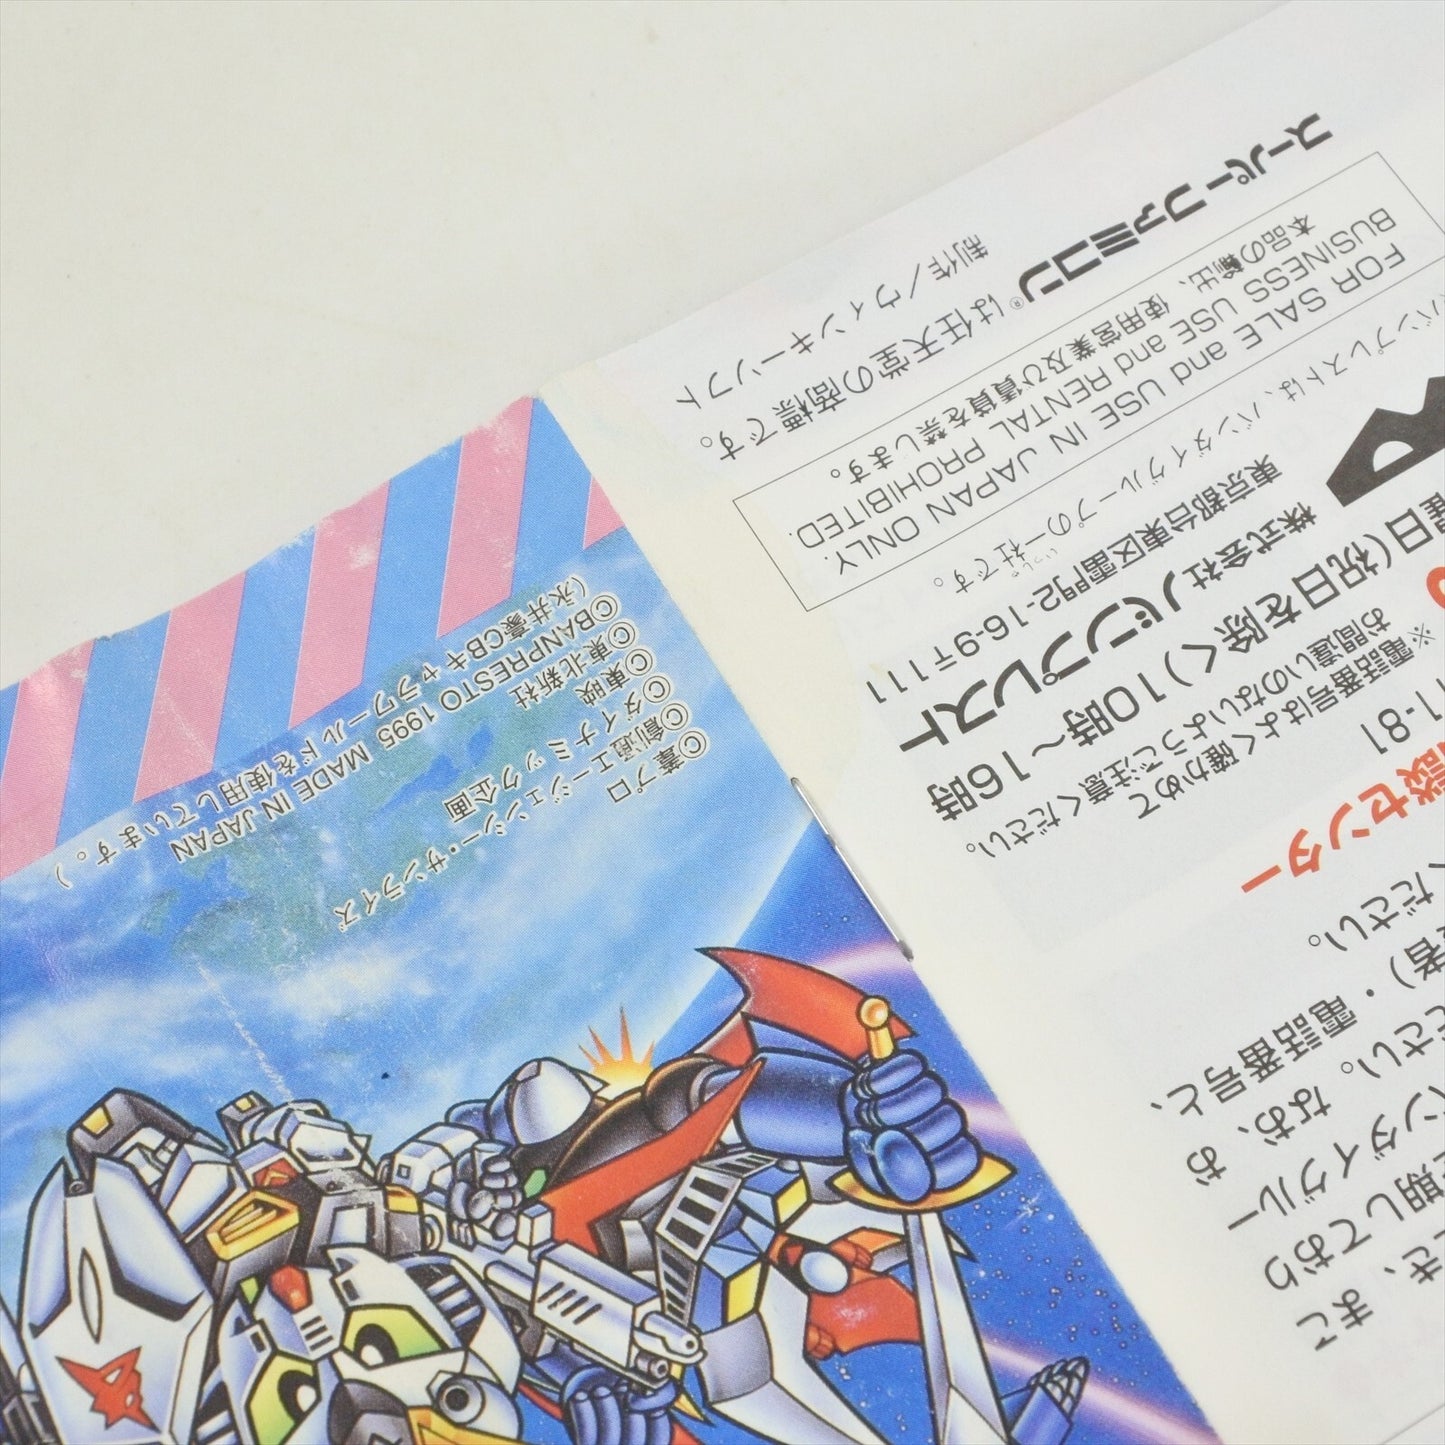 まこ
き、
期しており
ンダイグルー
お、
ださい。なお、
者)・電話番号と、
ください。
談センター
1-81
※電話番号はよく確かめて
お間違いのないようご注意ください。
曜日(祝日を除く)10時〜16時
株式会社バンプレスト
東京都台東区雷門2-16-9〒111
バンプレストは、バンダイグループの一社です。
いっしゃ
FOR SALE and USE IN JAPAN ONLY.
BUSINESS USE and RENTAL PROHIBITED.
本品の輸出、使用営業及び賃貸を禁じます。
スーパーファミコン®は任天堂の商標です。
制作/ウィンキーソフト
©創通エージェンシー・サンライズ
©ダイナミック企画
©東映
©東北新社
©BANPRESTO 1995 MADE IN JAPAN
(永井豪CBキャラワールドを使用しています。)
葦プロ